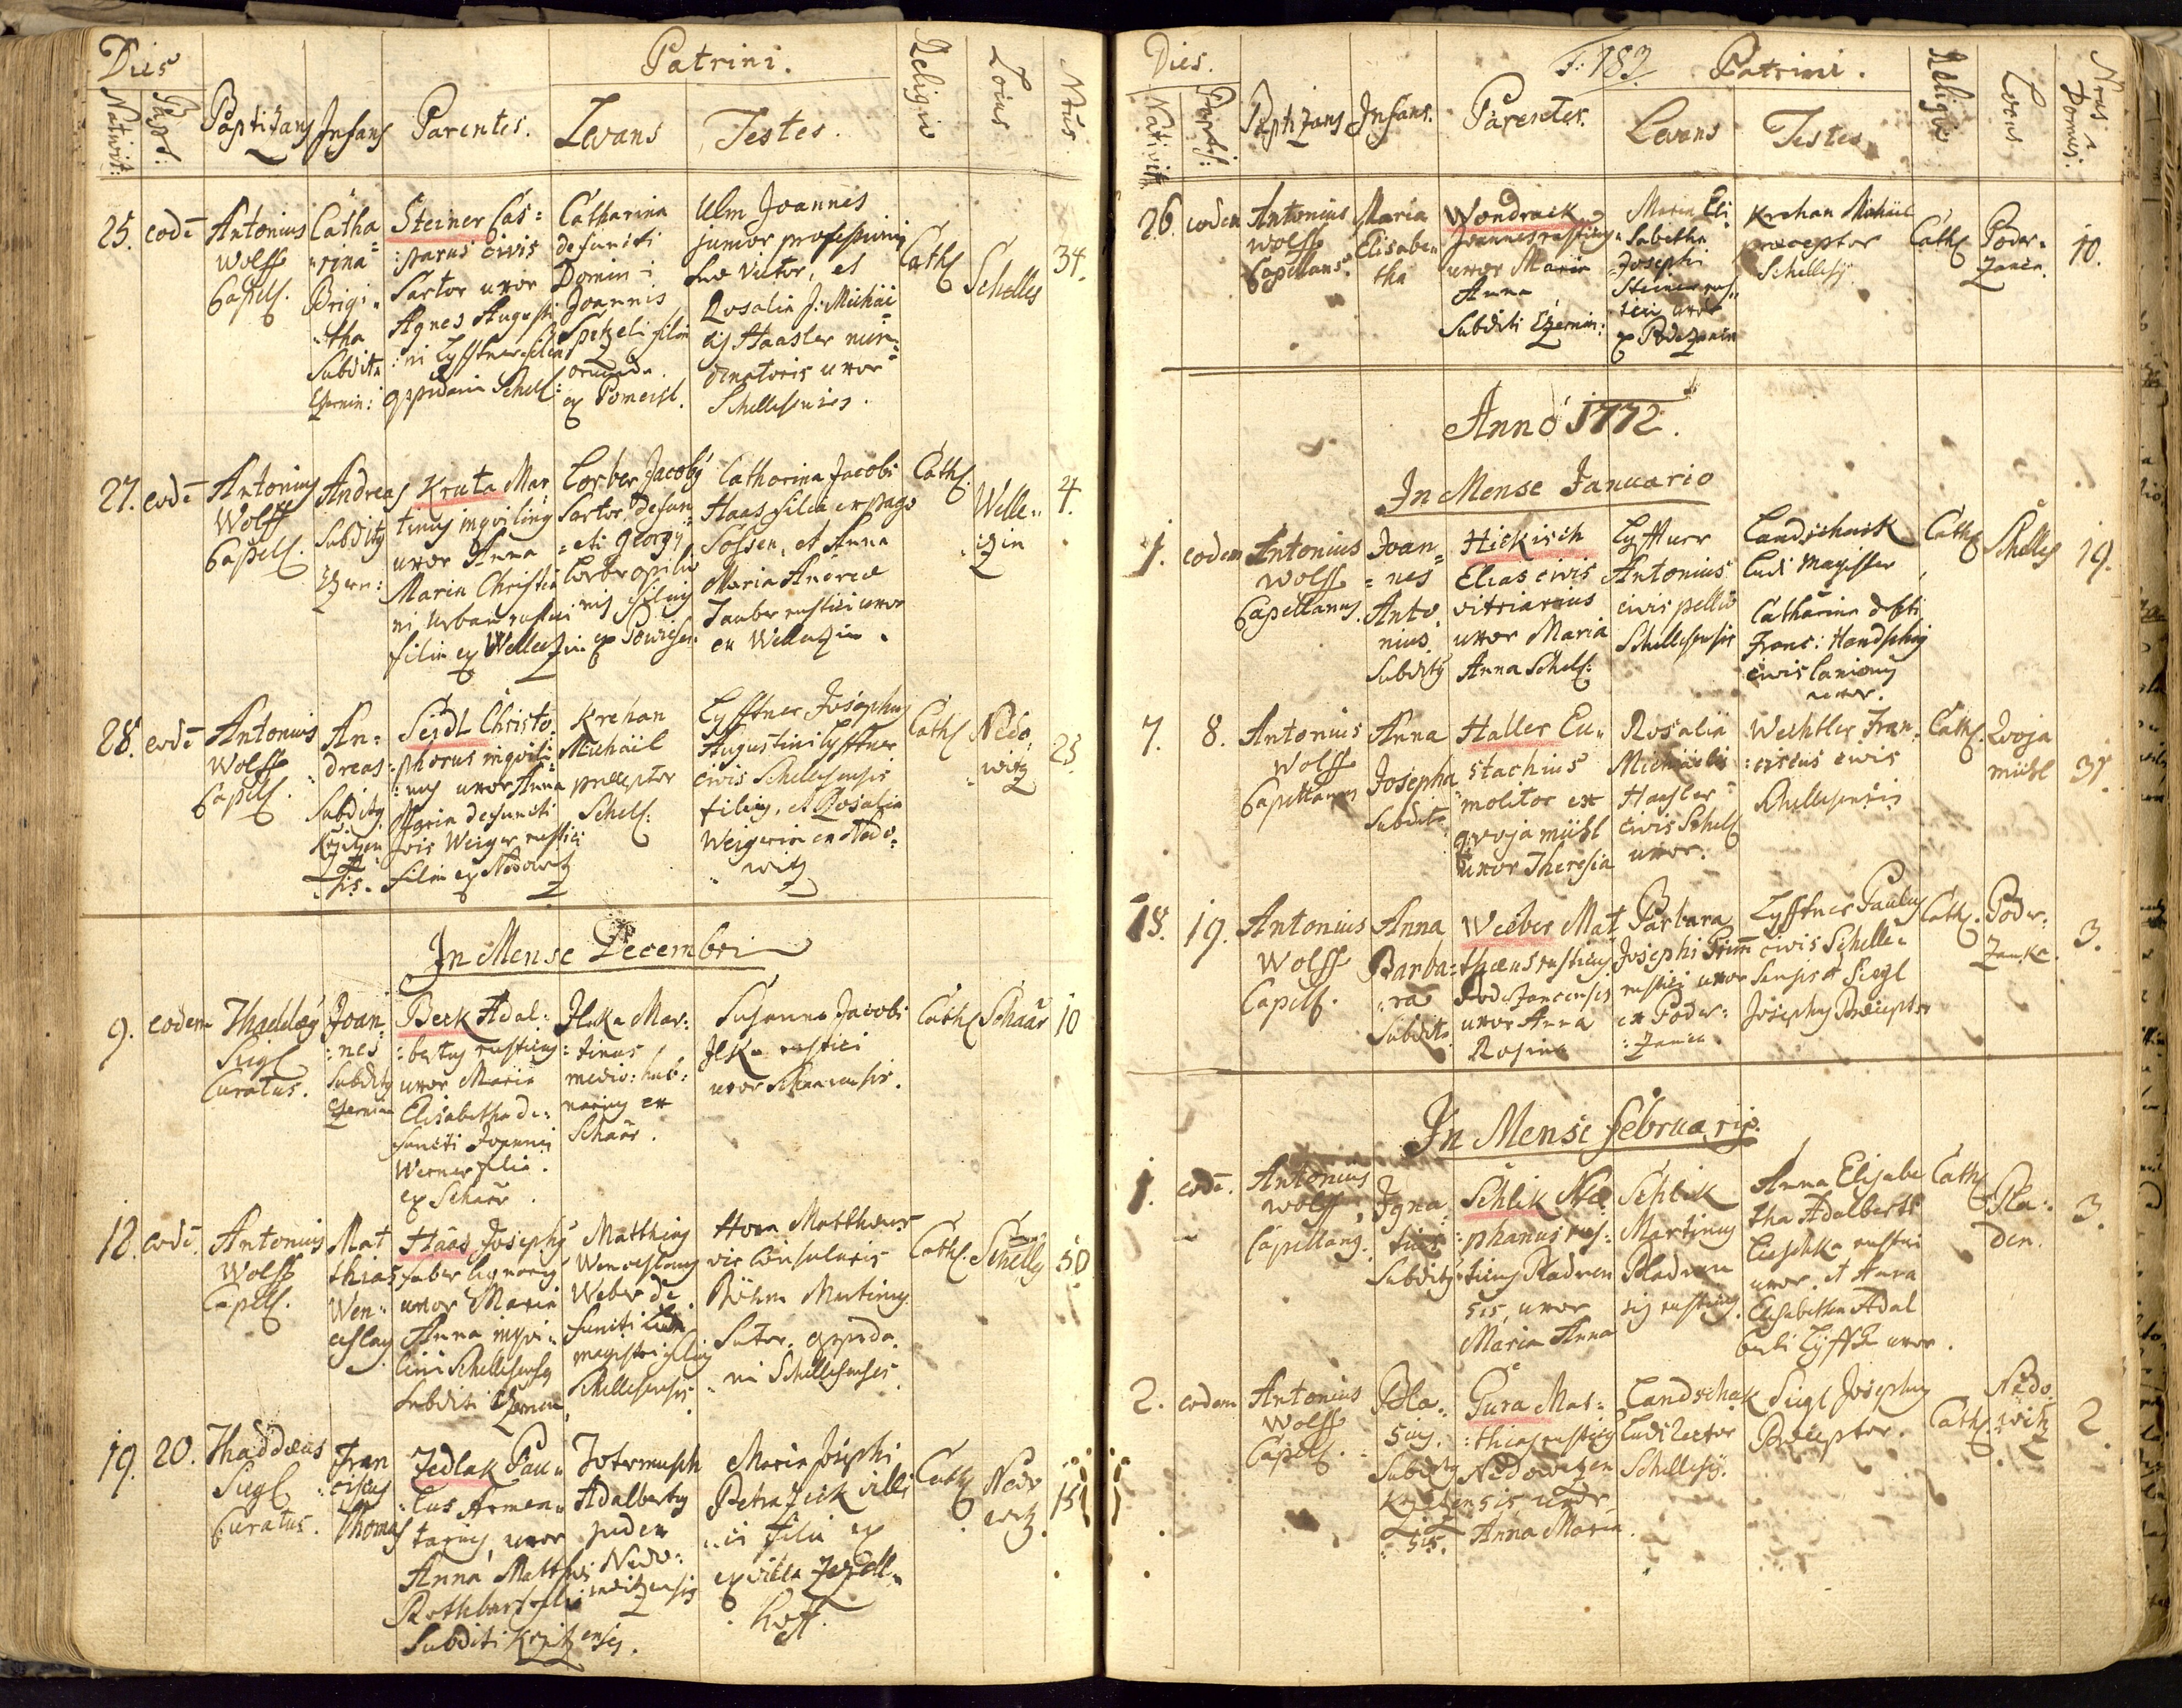 Dies
Nativit:
Bapt:
Baptizans
Infans
Parentes.
Patrini.
Levans
Testes.
Religio
Locus
Nrus
25. eodē
Antonius
Wolff
Capell.
Catha
rina
Brigi
tha
Subdita
Czernin:
Steiner Cas=
:parus civis
Sartor uxor
Agnes Augusti
:ni Lyfftner filia
oppidani Schel:
Catharina
defuncti
Domini
Joannis
filia
ex Pomeisl.
Ulm Joannes
junior professionis
et
Rosalia J: Michäe
lis Haasler
uxor
Schellesensis.
Cath
Schelles
34.
27. eodē
Antonius
Wolff
Capell.
Andreas
Subditus
Czern:
Kruta Mar
tinus inquilinus
uxor Anna
Maria Christia
ni Urban rustici
filia ex Welletzin
Lorber Jacobus
Sartor, defun
:cti Georgij
Lorber
filius
Catharina Jacobi
Haas filia ex pago
Sossen, et Anna
Maria Andreæ
Tauber rustici uxor
ex Welletzin.
Cath.
Welle
tzin
4.
28. eodē
Antonius
Wolff
Capell.
An=
dreas
Subditus
Seydl Christo
:phorus inquili
:nus uxor Anna
Maria defuncti
Jois Weiger rustici
filia ex Nedowitz
Krehan
Michäel
præceptor
Schell:
Lyfftner Josephus
Augustini Lyfftner
civis Schellesensis
filius, et Rosalia
Weigerin ex Nedo=
witz
Cath
Nedo
witz
25.
In Mense Decembri
9. eodem
Thaddæus
Siegl
Curatus.
Joan
:nes
Subditus
Czernin
Beck Adal:
:bertus rusticus
uxor Maria
Elisabetha de:
functi Joannis
Werner filia.
ex Schaar.
Ilska Mar:
:tinus
ex
Schaar.
Susanna Jacobi
Ilska rustici
uxor Schaarensis.
Cath
Schaar
10
12. eodē.
Antonius
Wolff
Capell.
Mat
thias
Wen
ceslaus
Haas Josephus
faber lignarius
uxor Maria
Anna inqui
lini Schellesenses
Subditi Czernin
Matthias
Wenceslaus
Weber de
functi Ludi
magistri filius
Schellesensis.
Hora Matthæus
vir Consularis
Böhm Martinus
Sutor, oppida
ni Schellesenses.
Cath.
Schelles
50
19. 20.
Thaddæus
Siegl
Curatus.
Fran
ciscus
Thomas
Jedlak Pau
:lus Armen
tarius, uxor
Anna Matthæi
filia
Subditi Kržitzenses.
Adalbertus
Nedo:
witzensis
Maria Josephi
filia ex
ex villa
hoff.
Cath
Nedo
witz.
15
Dies.
Nativit
Bapt:
Baptizans
Infans.
Parentes.
F: 183
Patrini.
Levans
Testes
Religio
Locus
Nrus
Domus:
26. eodem
Antonius
Wolff
Capellanus.
Maria
Elisabe
tha
Wondrack
Joannes rusticus
uxor Maria
Anna
Subditi Czernin:
Maria Eli
sabetha
Josephi
Steiner rus
tici uxor
ex Poderzanin
Krehan Michäel
præceptor
Schelles
Cath
Poder
zanin.
10.
Anno 1772.
In Mense Januario
1. eodem
Antonius
Wolff
Capellanus.
Joan=
=nes
Anto
nius.
Subditus
Hickisch
Elias civis
vitriarius
uxor Maria
Anna Schel:
Lyfftner
Antonius
civis pellio
Schellesensis
Landschack
Ludi Magister
Catharina defti
Franc: Handschig
civis lanionis
uxor.
Cath
Schelles
19.
7. 8.
Antonius
Wolff
Capellanus
Anna
Josepha
Subdita
Haller Eu
stachius
molitor ex
qvoja mühl
uxor Theresia
Rosalia
Michäelis
Haasler
civis Schell
uxor.
Wechtler Fran
:ciscus civis
Schellesensis
Cath.
Qvoja
mühl
37.
18. 19.
Antonius
Wolff
Capell.
Anna
Barba=
ra
Subdita
Weeber Mat
thæus rusticus
Poderzanensis
uxor Anna
Rosina
Barbara
Josephi
rustici uxor
ex Poder:
:zanin.
Lyfftner Paulus
civis Schelle
sensis et Siegl
Josephus Præceptor
Cath.
Poder:
zanka.
3.
In Mense Februarij.
1. eodē.
Antonius
Wolff,
Capellanus.
Igna
tius
Subditus
Schlik Ste
:phanus rus:
ticus Pladnen
sis, uxor
Maria Anna
Schlik
Martinus
Pladnen
sis rusticus.
Anna Elisabe
tha Adalberti
rustici
uxor, et Anna
Elisabetha Adal
berti uxor.
Cath
Pla:
den.
3.
2. eodem
Antonius
Wolff
Capell.
Bla
sius.
Subditus
Kržitzen
sis.
Gura Mat=
:thias rusticus
Nedowitzen
sis uxor
Anna Maria.
Landschak
Ludi rector
Schelles.
Siegl Josephus
Præceptor.
Cath
Nedo
witz
2.